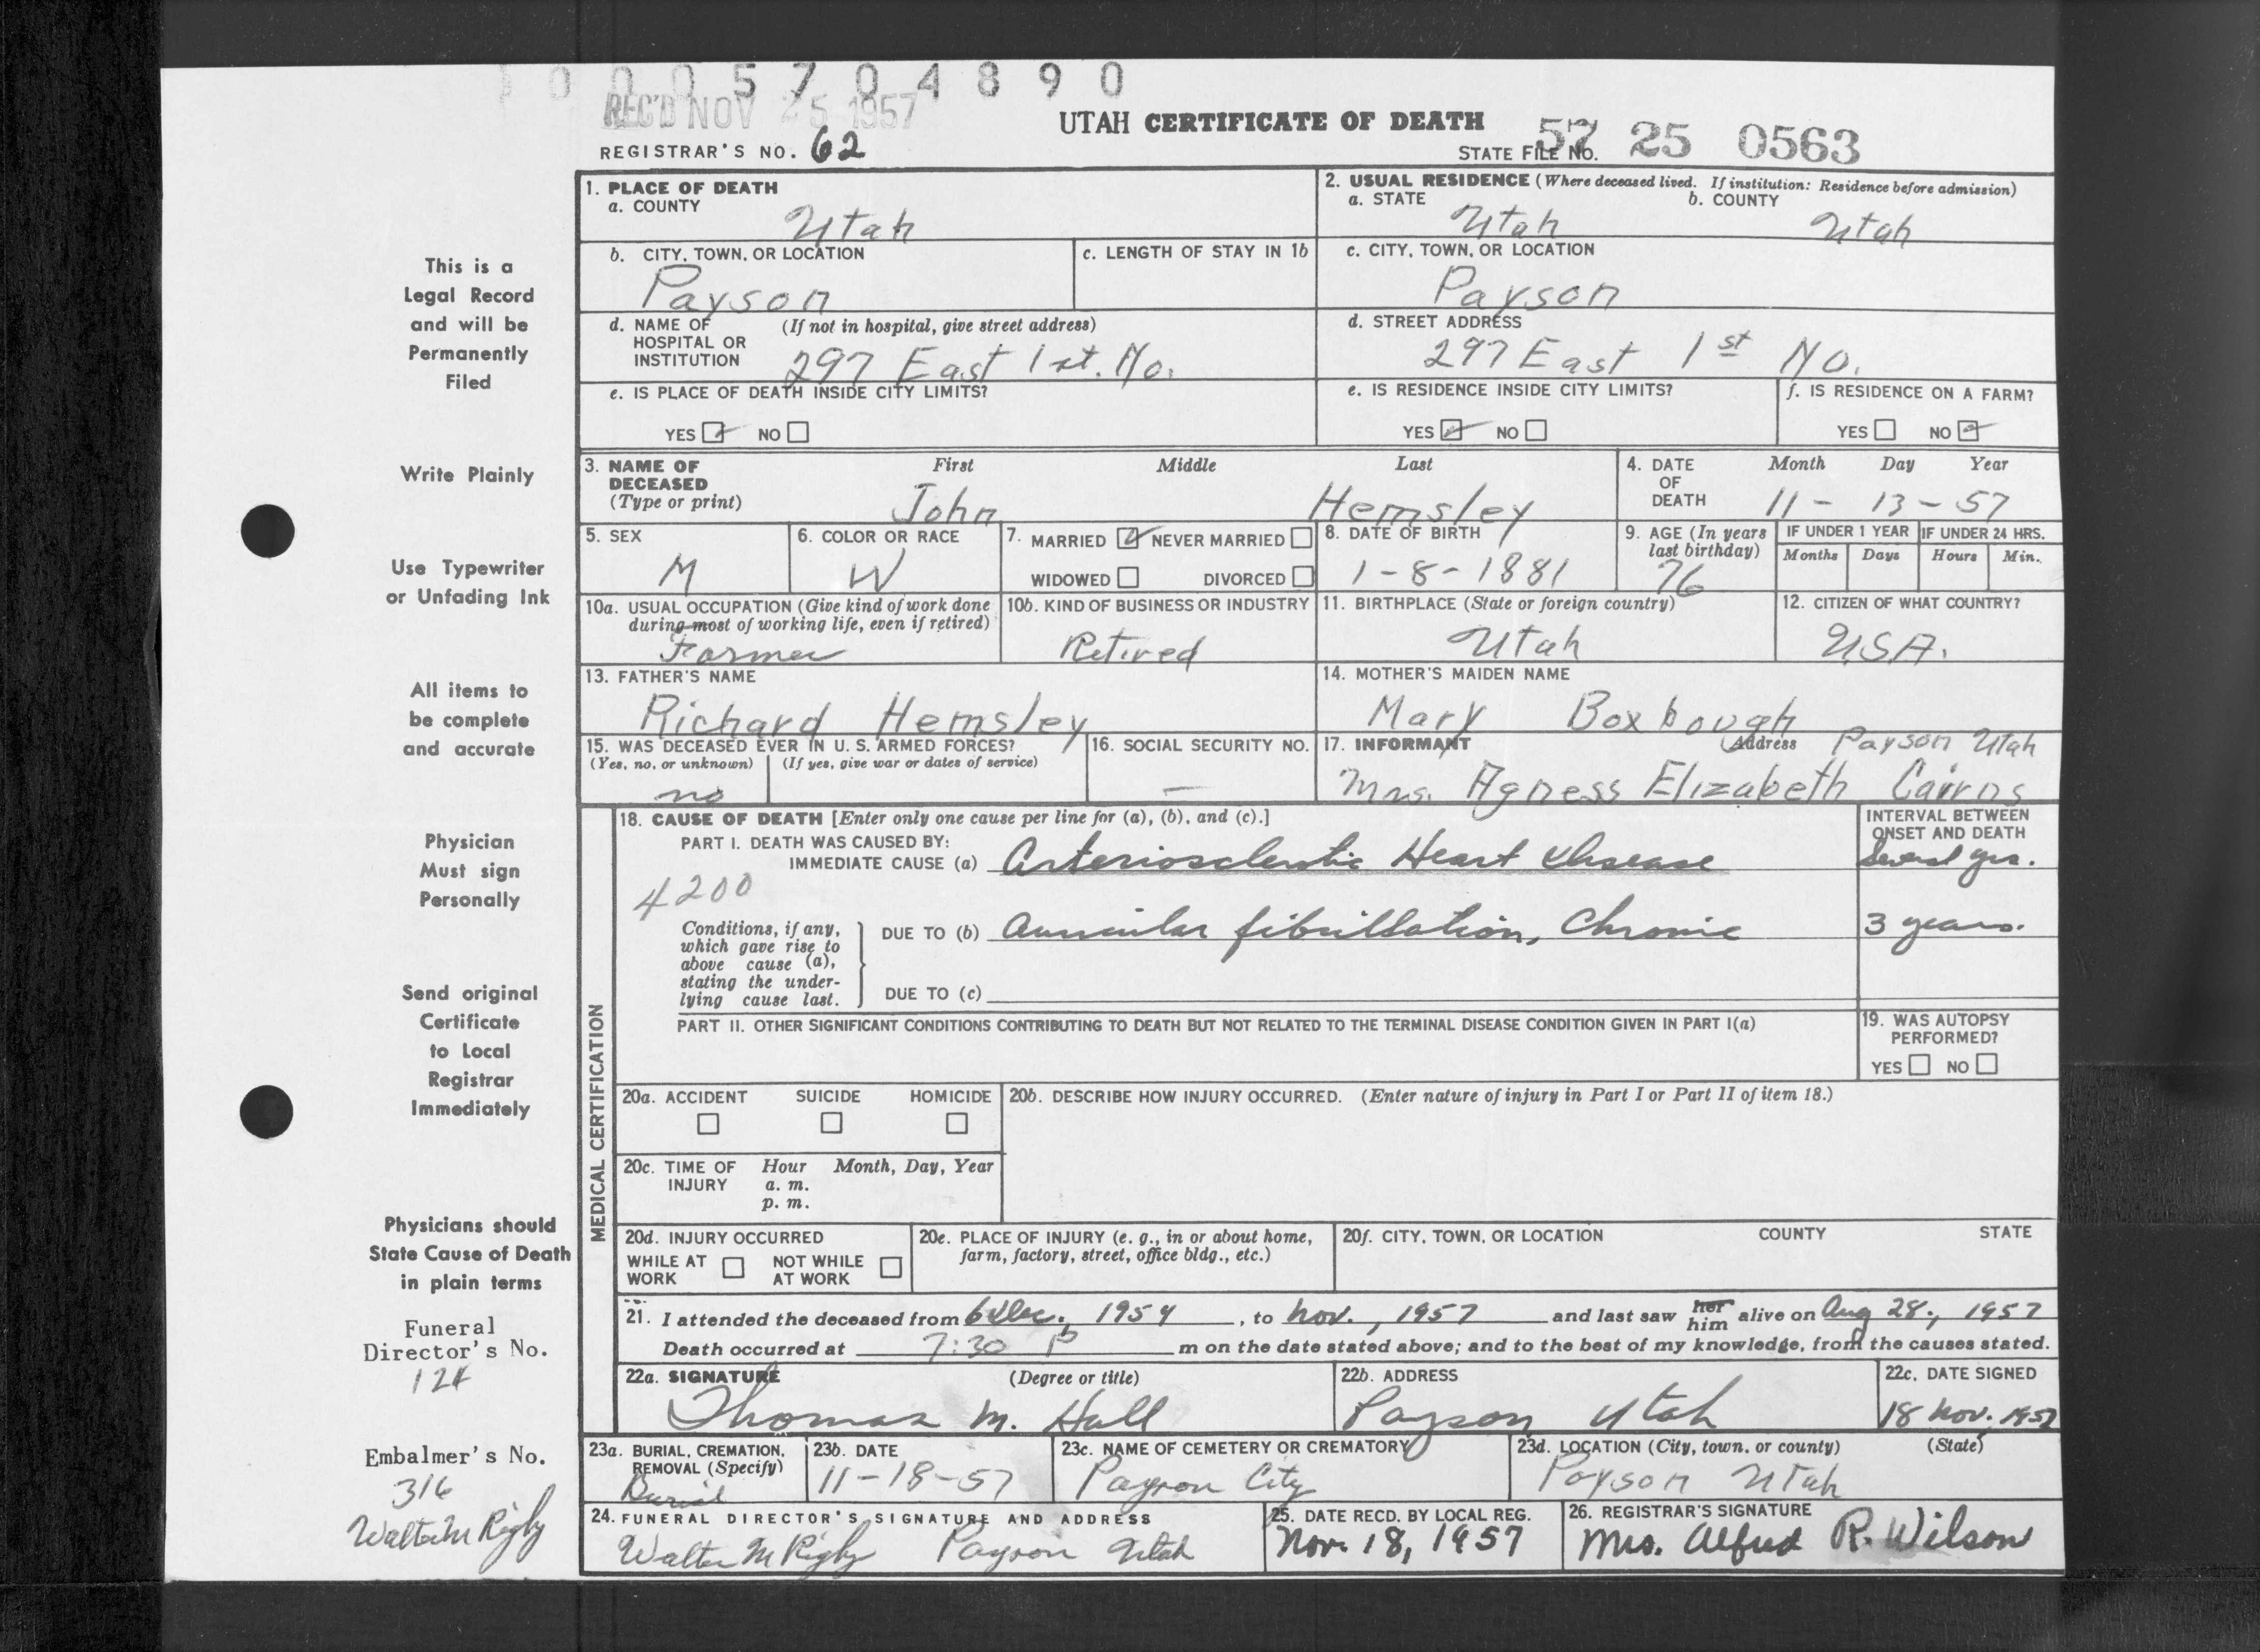 10005704890
REC'D NOV 25 1957
UTAH CERTIFICATE OF DEATH
REGISTRAR'S NO. 62
STATE FILE NO. 57 25 0563
This is a
Legal Record
and will be
Permanently
Filed
Write Plainly
Use Typewriter
or Unfading Ink
All items to
be complete
and accurate
Physician
Must sign
Personally
Send original
Certificate
to Local
Registrar
Immediately
Physicians should
State Cause of Death
in plain terms
Funeral
Director's No.
124
Embalmer's No.
316
Walter M Rigby
1. PLACE OF DEATH
a. COUNTY
Utah
2. USUAL RESIDENCE (Where deceased lived. If institution: Residence before admission)
a. STATE b. COUNTY
Utah Utah
b. CITY, TOWN, OR LOCATION c. LENGTH OF STAY IN 1b
Payson
c. CITY, TOWN, OR LOCATION
Payson
d. NAME OF (If not in hospital, give street address)
HOSPITAL OR
INSTITUTION 297 East 1st. No.
d. STREET ADDRESS
297 East 1st No.
e. IS PLACE OF DEATH INSIDE CITY LIMITS?
YES NO
e. IS RESIDENCE INSIDE CITY LIMITS?
YES NO
f. IS RESIDENCE ON A FARM?
YES NO
3. NAME OF First Middle Last
DECEASED
(Type or print) John Hemsley
4. DATE Month Day Year
OF
DEATH 11 - 13 - 57
5. SEX
M
6. COLOR OR RACE
W
7. MARRIED NEVER MARRIED
WIDOWED DIVORCED
8. DATE OF BIRTH
1-8-1881
9. AGE (In years
last birthday)
76
IF UNDER 1 YEAR IF UNDER 24 HRS.
Months Days Hours Min.
10a. USUAL OCCUPATION (Give kind of work done
during most of working life, even if retired)
Farmer
10b. KIND OF BUSINESS OR INDUSTRY
Retired
11. BIRTHPLACE (State or foreign country)
Utah
12. CITIZEN OF WHAT COUNTRY?
USA.
13. FATHER'S NAME
Richard Hemsley
14. MOTHER'S MAIDEN NAME
Mary Boxbough
15. WAS DECEASED EVER IN U. S. ARMED FORCES?
(Yes, no, or unknown) (If yes, give war or dates of service)
no
16. SOCIAL SECURITY NO.
—
17. INFORMANT Address Payson Utah
Mrs. Agness Elizabeth Cairns
MEDICAL CERTIFICATION
18. CAUSE OF DEATH [Enter only one cause per line for (a), (b), and (c).]
PART I. DEATH WAS CAUSED BY:
IMMEDIATE CAUSE (a) Arteriosclerotic Heart disease
INTERVAL BETWEEN
ONSET AND DEATH
Several yrs.
4200
Conditions, if any,
which gave rise to
above cause (a),
stating the under-
lying cause last.
DUE TO (b) Auricular fibrillation, Chronic
3 years.
DUE TO (c)
PART II. OTHER SIGNIFICANT CONDITIONS CONTRIBUTING TO DEATH BUT NOT RELATED TO THE TERMINAL DISEASE CONDITION GIVEN IN PART I(a)
19. WAS AUTOPSY
PERFORMED?
YES NO
20a. ACCIDENT SUICIDE HOMICIDE
20b. DESCRIBE HOW INJURY OCCURRED. (Enter nature of injury in Part I or Part II of item 18.)
20c. TIME OF Hour Month, Day, Year
INJURY a. m.
p. m.
20d. INJURY OCCURRED
WHILE AT NOT WHILE
WORK AT WORK
20e. PLACE OF INJURY (e. g., in or about home,
farm, factory, street, office bldg., etc.)
20f. CITY, TOWN, OR LOCATION COUNTY STATE
21. I attended the deceased from 6 Dec., 1954, to Nov., 1957 and last saw her him alive on Aug 28, 1957
Death occurred at 7:30 P m on the date stated above; and to the best of my knowledge, from the causes stated.
22a. SIGNATURE (Degree or title)
Thomas M. Hall
22b. ADDRESS
Payson Utah
22c. DATE SIGNED
18 Nov. 1957
23a. BURIAL, CREMATION,
REMOVAL (Specify)
Burial
23b. DATE
11-18-57
23c. NAME OF CEMETERY OR CREMATORY
Payson City
23d. LOCATION (City, town, or county) (State)
Payson Utah
24. FUNERAL DIRECTOR'S SIGNATURE AND ADDRESS
Walter M Rigby Payson Utah
25. DATE RECD. BY LOCAL REG.
Nov. 18, 1957
26. REGISTRAR'S SIGNATURE
Mrs. Alfred R. Wilson